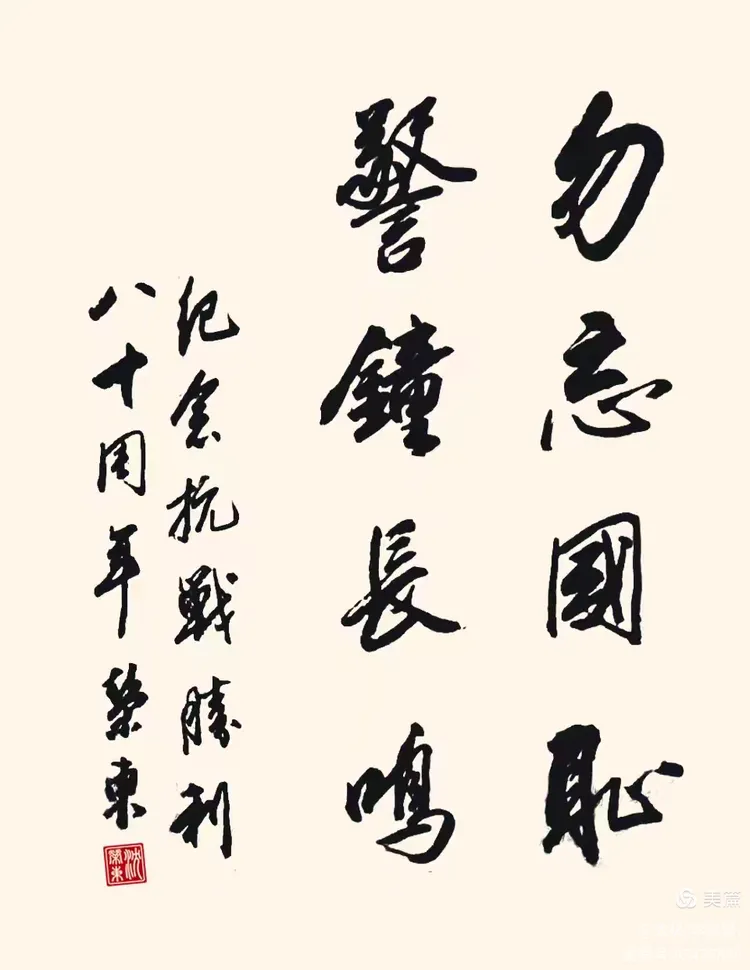 勿忘國恥
警鐘長鳴
紀念抗戰勝利
八十周年榮東
沈榮東
美篇